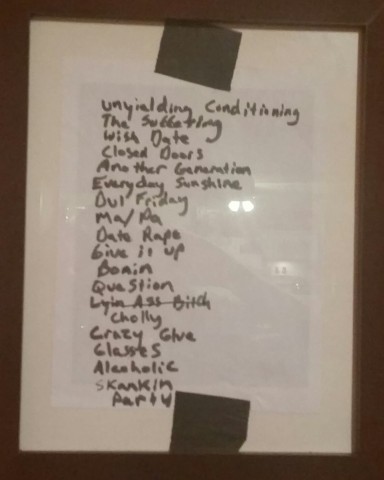 unyielding Conditioning
The Suffering
Wish Date
Closed Doors
Another Generation
Everyday Sunshine
Ma/Pa
Date Rape
Give it up
Bonin
Question
Lyin Ass Bitch
Cholly
Crazy Glue
Glasses
Alcoholic
Skankin
Party